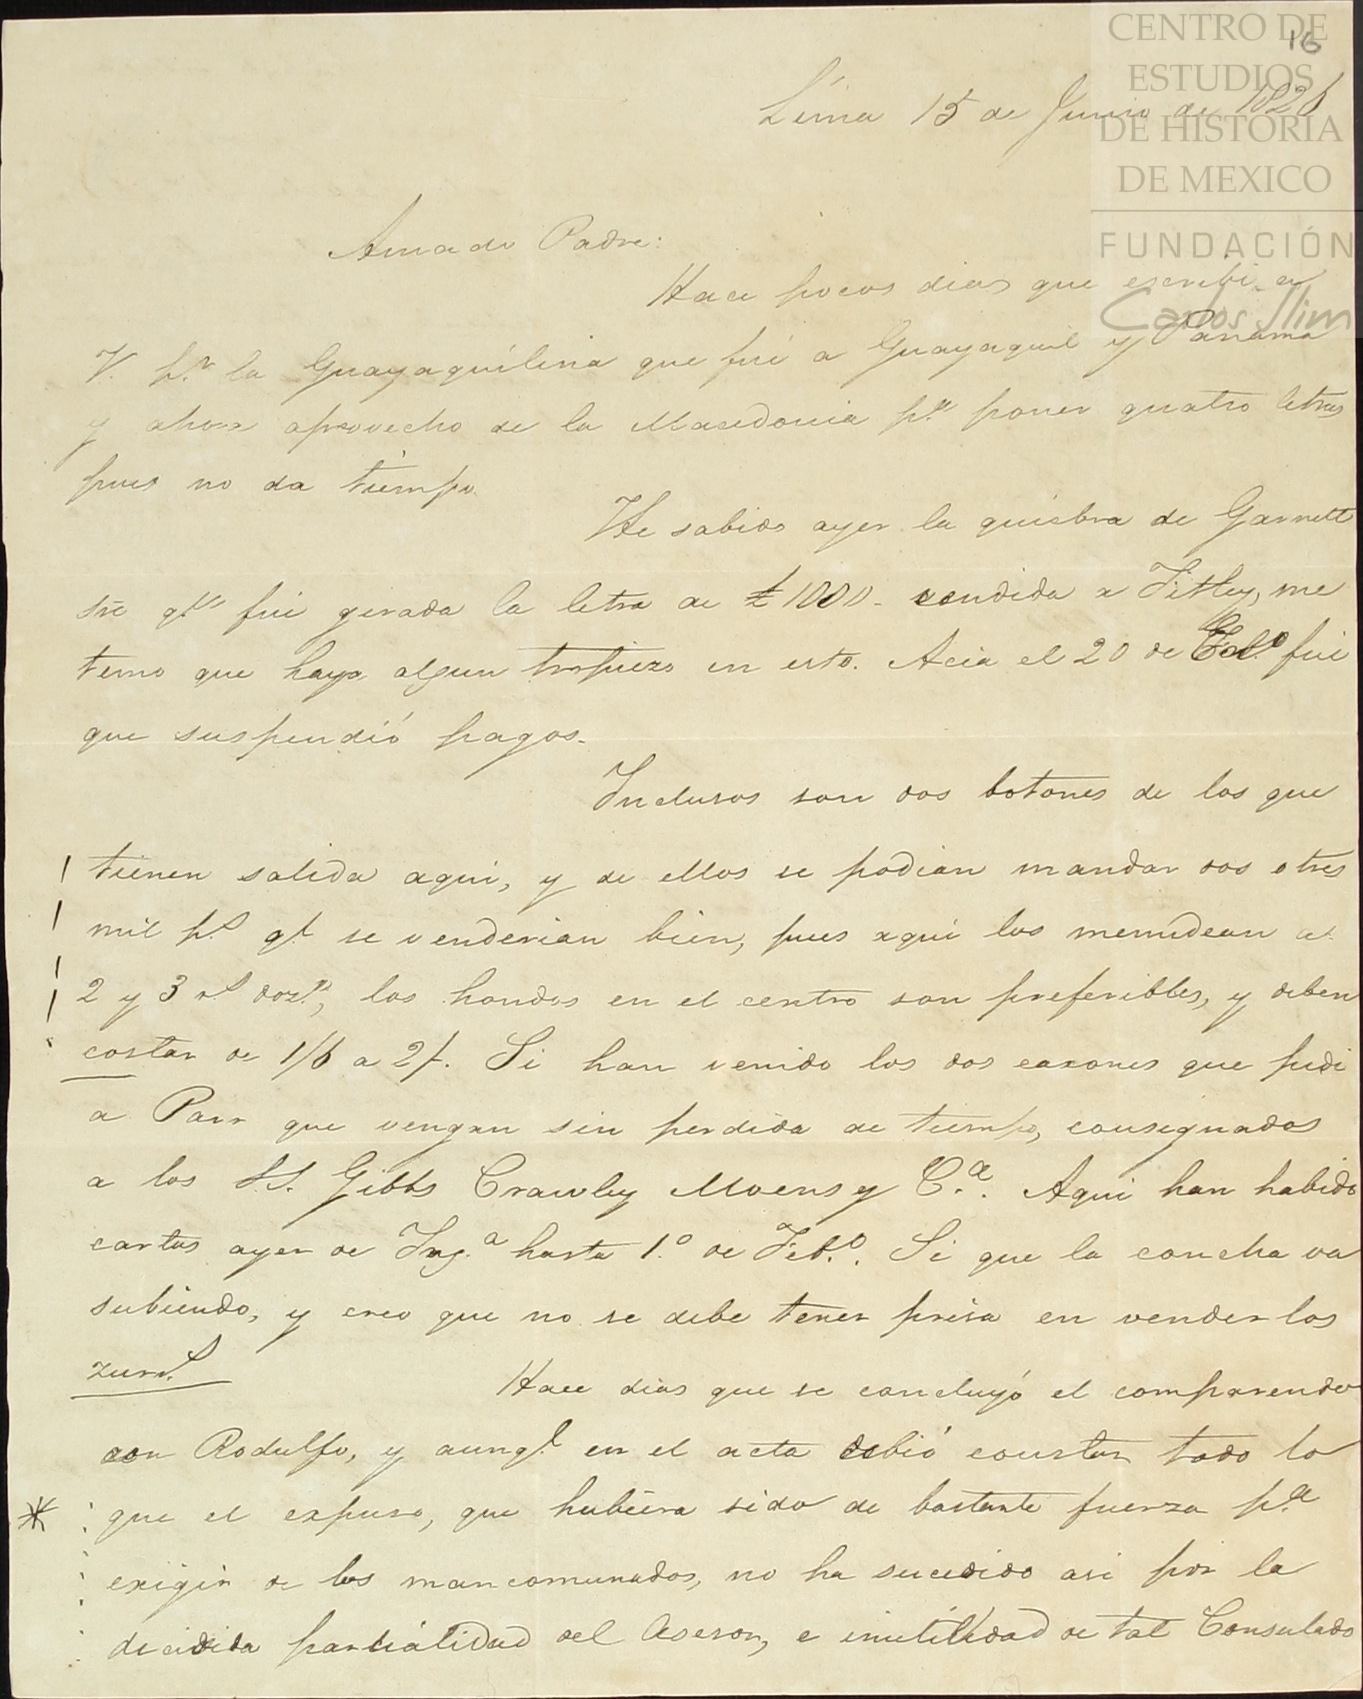 CENTRO DE
16
ESTUDIOS
DE HISTORIA
DE MEXICO
FUNDACIÓN
Carlos Slim
Lima 15 de Junio de 1826
Amado Padre:
Hace pocos dias que escribi a
V. p.r la Guayaquileña que fué a Guayaquil y Panama
y ahora aprovecho de la Macedonia p.a poner quatro letras
pues no da tiempo.
He sabido ayer la quiebra de Garnett
sre qn fué girada la letra de £1000 - vendida a Titley, me
temo que haya algun tropiezo en esto. Acia el 20 de Feb.o fué
que suspendió pagos.
Inclusos son dos botones de los que
tienen salida aqui, y de ellos se podian mandar dos o tres
mil p.s q.e se venderian bien, pues aqui los menudean a
2 y 3 r.s doz.a, los hondos en el centro son preferibles, y deben
costar de 1/6 a 2/. Si han venido los dos caxones que pedi
a Parr que vengan sin perdida de tiempo, consignados
a los S.S. Gibbs Crawley Moens y C.a. Aqui han habido
cartas ayer de Ing.a hasta 1.o de Feb.o. Si que la concha va
subiendo, y creo que no se debe tener prisa en vender los
zurr.s
Hace dias que se concluyó el comparendo
con Rodulfo, y aunq.e en el acta debió constar todo lo
* que el expuso, que hubiera sido de bastante fuerza p.a
exigir de los mancomunados, no ha sucedido asi por la
decidida parcialidad del Asesor, e inutilidad de tal Consulado